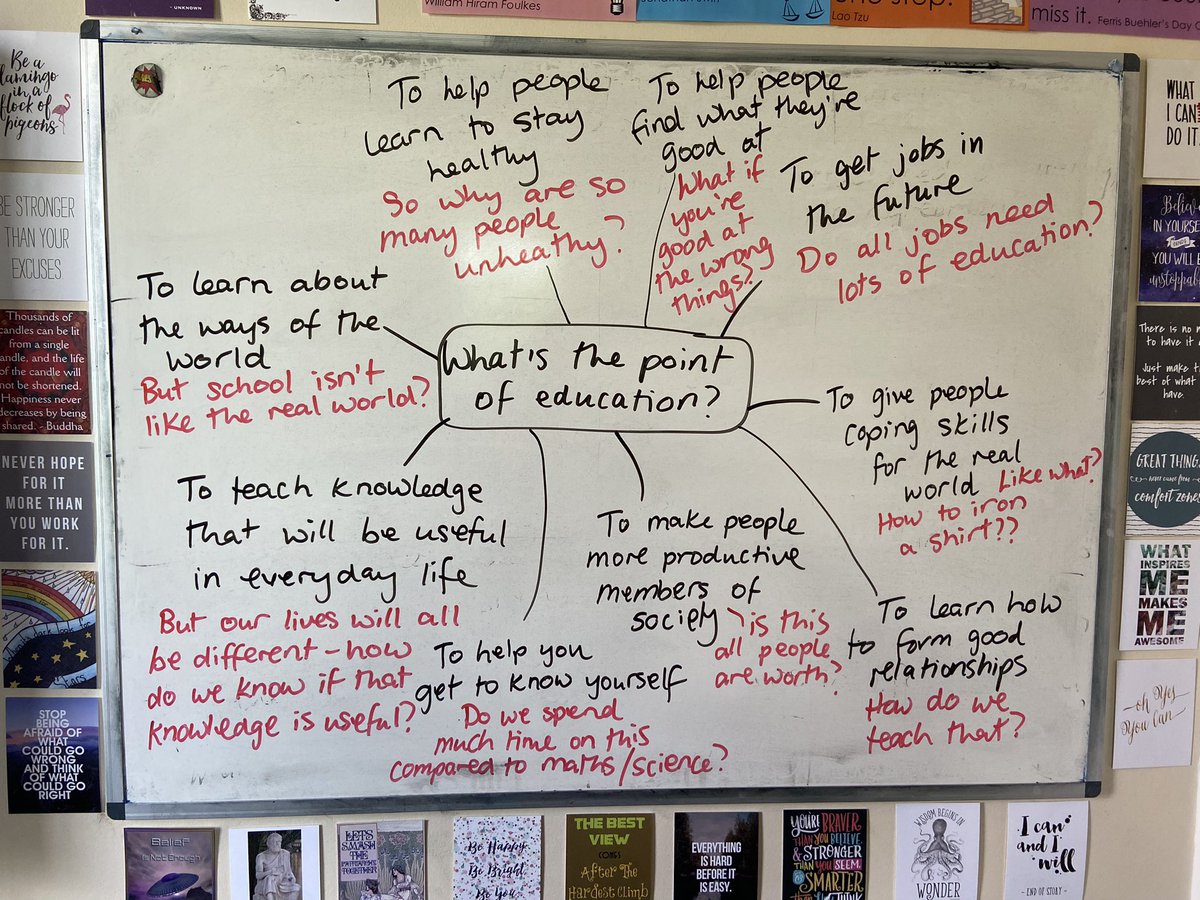 UNKNOWN
William Hiram Foulkes
Lao Tzu
miss it. Ferris Bueller's Day
Be a
flamingo
in a
flock of
pigeons
BE STRONGER
THAN YOUR
EXCUSES.
Thousands of
candles can be lit
from a single
candle, and the life
of the candle will
not be shortened.
Happiness never
decreases by being
shared. - Buddha
NEVER HOPE
FOR IT
MORE THAN
YOU WORK
FOR IT.
STOP
BEING
AFRAID OF
WHAT
COULD GO
WRONG
AND THINK
OF WHAT
COULD GO
RIGHT
YES
To help people
learn to stay
healthy
So why are so
many people
unheathy?
To help people
find what they're
good at
What if
you're
good at
the wrong
things?
To get jobs in
the future
Do all jobs need
lots of education?
To learn about
the ways of the
world
But school isn't
like the real world?
What's the point
of education?
To give people
coping skills
for the real
world Like what?
How to iron
a shirt??
To teach knowledge
that will be useful
in everyday life
But our lives will all
be different - how
do we know if that
knowledge is useful?
To help you
get to know yourself
Do we spend
much time on this
compared to maths/science?
To make people
more productive
members of
society
is this
all people
are worth?
To learn how
to form good
relationships
How do we
teach that?
WHAT
I CAN
DO IT
Believe
IN YOURSELF
YOU WILL BE
unstoppable
There is no
to have it
Just make the
best of what
have.
GREAT THINGS
never came from
comfort zones
WHAT
INSPIRES
ME
MAKES
ME
AWESOME
oh Yes
You Can
Belief
is Not Enough
LET'S
SMASH
THE
PATRIARCHY
TOGETHER
Be Happy
Be Bright
Be You
THE BEST
VIEW
COMES
After The
Hardest Climb
EVERYTHING
IS HARD
BEFORE IT
IS EASY.
YOU'RE BRAVER
THAN YOU BELIEVE
& STRONGER
THAN YOU SEEM
& SMARTER
THAN YOU THINK
WISDOM BEGINS IN
WONDER
I can
and I
will
- END OF STORY -